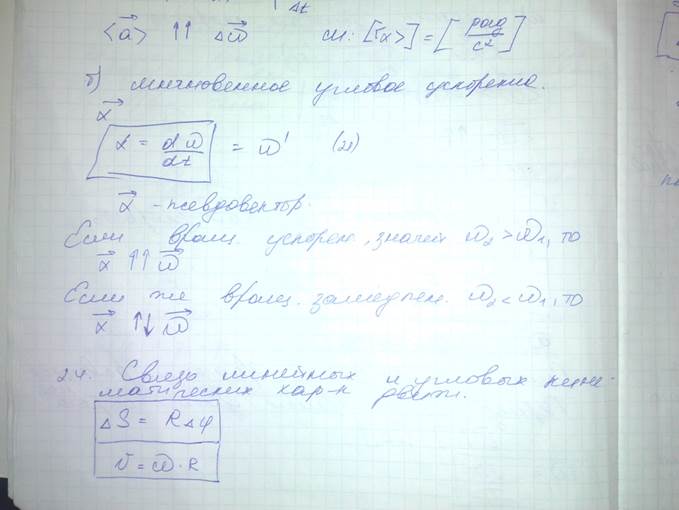 Δt
⟨a⃗⟩ ↑↑ Δω⃗ см: [⟨α⟩] = [рад/с²]
б) мгновенное угловое ускорение.
α⃗
α = dω/dt = ω' (21)
α⃗ - псевдовектор
Если вращ. ускорен, значит ω₂ > ω₁, то
α⃗ ↑↑ ω⃗
Если же вращ. замедлен. ω₂ < ω₁, то
α⃗ ↑↓ ω⃗
2.4. Связь линейных и угловых кине-
матических хар-к
ΔS = RΔφ
v = ω·R